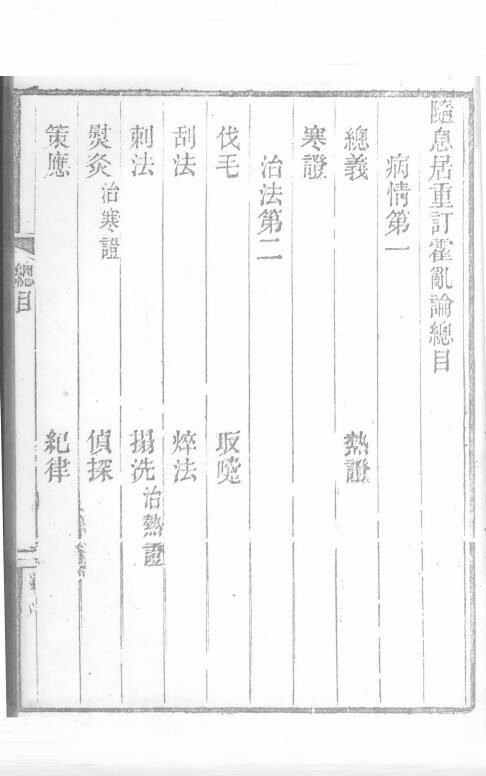 隨息居重訂霍亂論總目
病情第一
總義 熱證
寒證
治法第二
伐毛 取嚏
刮法 焠法
刺法 搨洗治熱證
熨灸治寒證 偵探
策應 紀律
總目